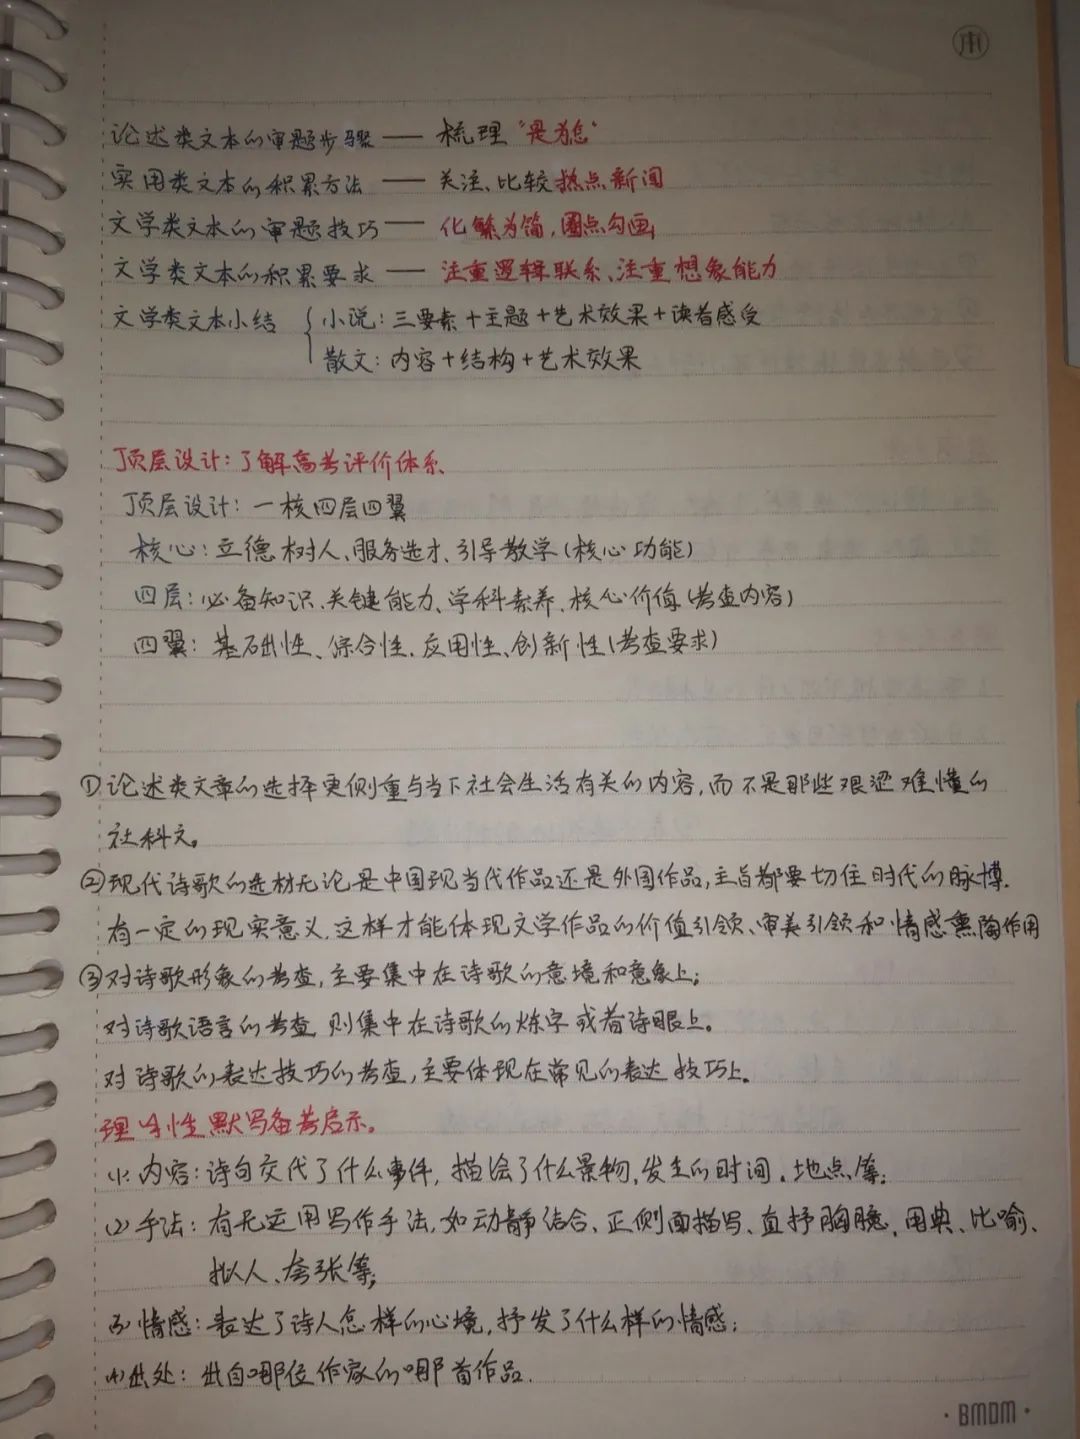 论述类文本的审题步骤——梳理"是为怎"
实用类文本的积累方法——关注、比较热点新闻
文学类文本的审题技巧——化繁为简,圈点勾画
文学类文本的积累要求——注重逻辑联系、注重想象能力
文学类文本小结 { 小说:三要素+主题+艺术效果+读者感受
散文:内容+结构+艺术效果
顶层设计:了解高考评价体系
顶层设计:一核四层四翼
核心:立德树人、服务选才、引导教学(核心功能)
四层:必备知识、关键能力、学科素养、核心价值(考查内容)
四翼:基础性、综合性、应用性、创新性(考查要求)
①论述类文章的选择更侧重与当下社会生活有关的内容,而不是那些艰涩难懂的
社科文。
②现代诗歌的选材无论是中国现当代作品还是外国作品,主旨都要切住时代的脉博.
有一定的现实意义,这样才能体现文学作品的价值引领、审美引领和情感熏陶作用
③对诗歌形象的考查,主要集中在诗歌的意境和意象上;
对诗歌语言的考查,则集中在诗歌的炼字或者诗眼上。
对诗歌的表达技巧的考查,主要体现在常见的表达技巧上。
理解性默写备考启示。
(1)内容:诗句交代了什么事件,描绘了什么景物,发生的时间、地点等;
(2)手法:有无运用写作手法,如动静结合、正侧面描写、直抒胸臆、用典、比喻、
拟人、夸张等;
(3)情感:表达了诗人怎样的心境,抒发了什么样的情感;
(4)出处:出自哪位作家的哪首作品.
·BMDM·